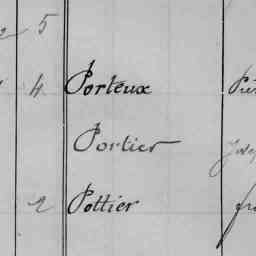 5
4 Porteux
Portier
2 Pottier